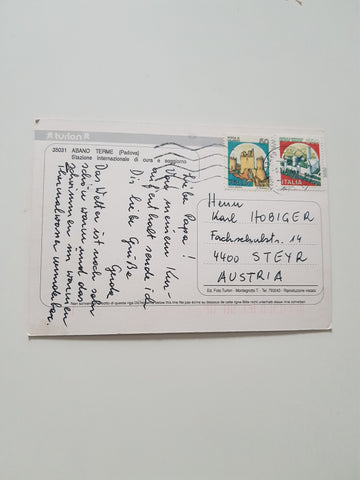 turlon
35031 ABANO TERME (Padova)
Stazione internazionale di cura e soggiorno
ITALIA
Liebe Papa!
Von meinem Kur-
aufenthalt sende ich
Dir liebe Grüße
Gerda
Das Wetter ist noch sehr
schön warm und das
schwimmen im warmen
Thermalwasser wunderbar.
Herrn
Karl HOBIGER
Fachschulstr. 14
4400 STEYR
AUSTRIA
Ed. Foto Turlon - Montegrotto T. - Tel. 793040 - Riproduzione vietata